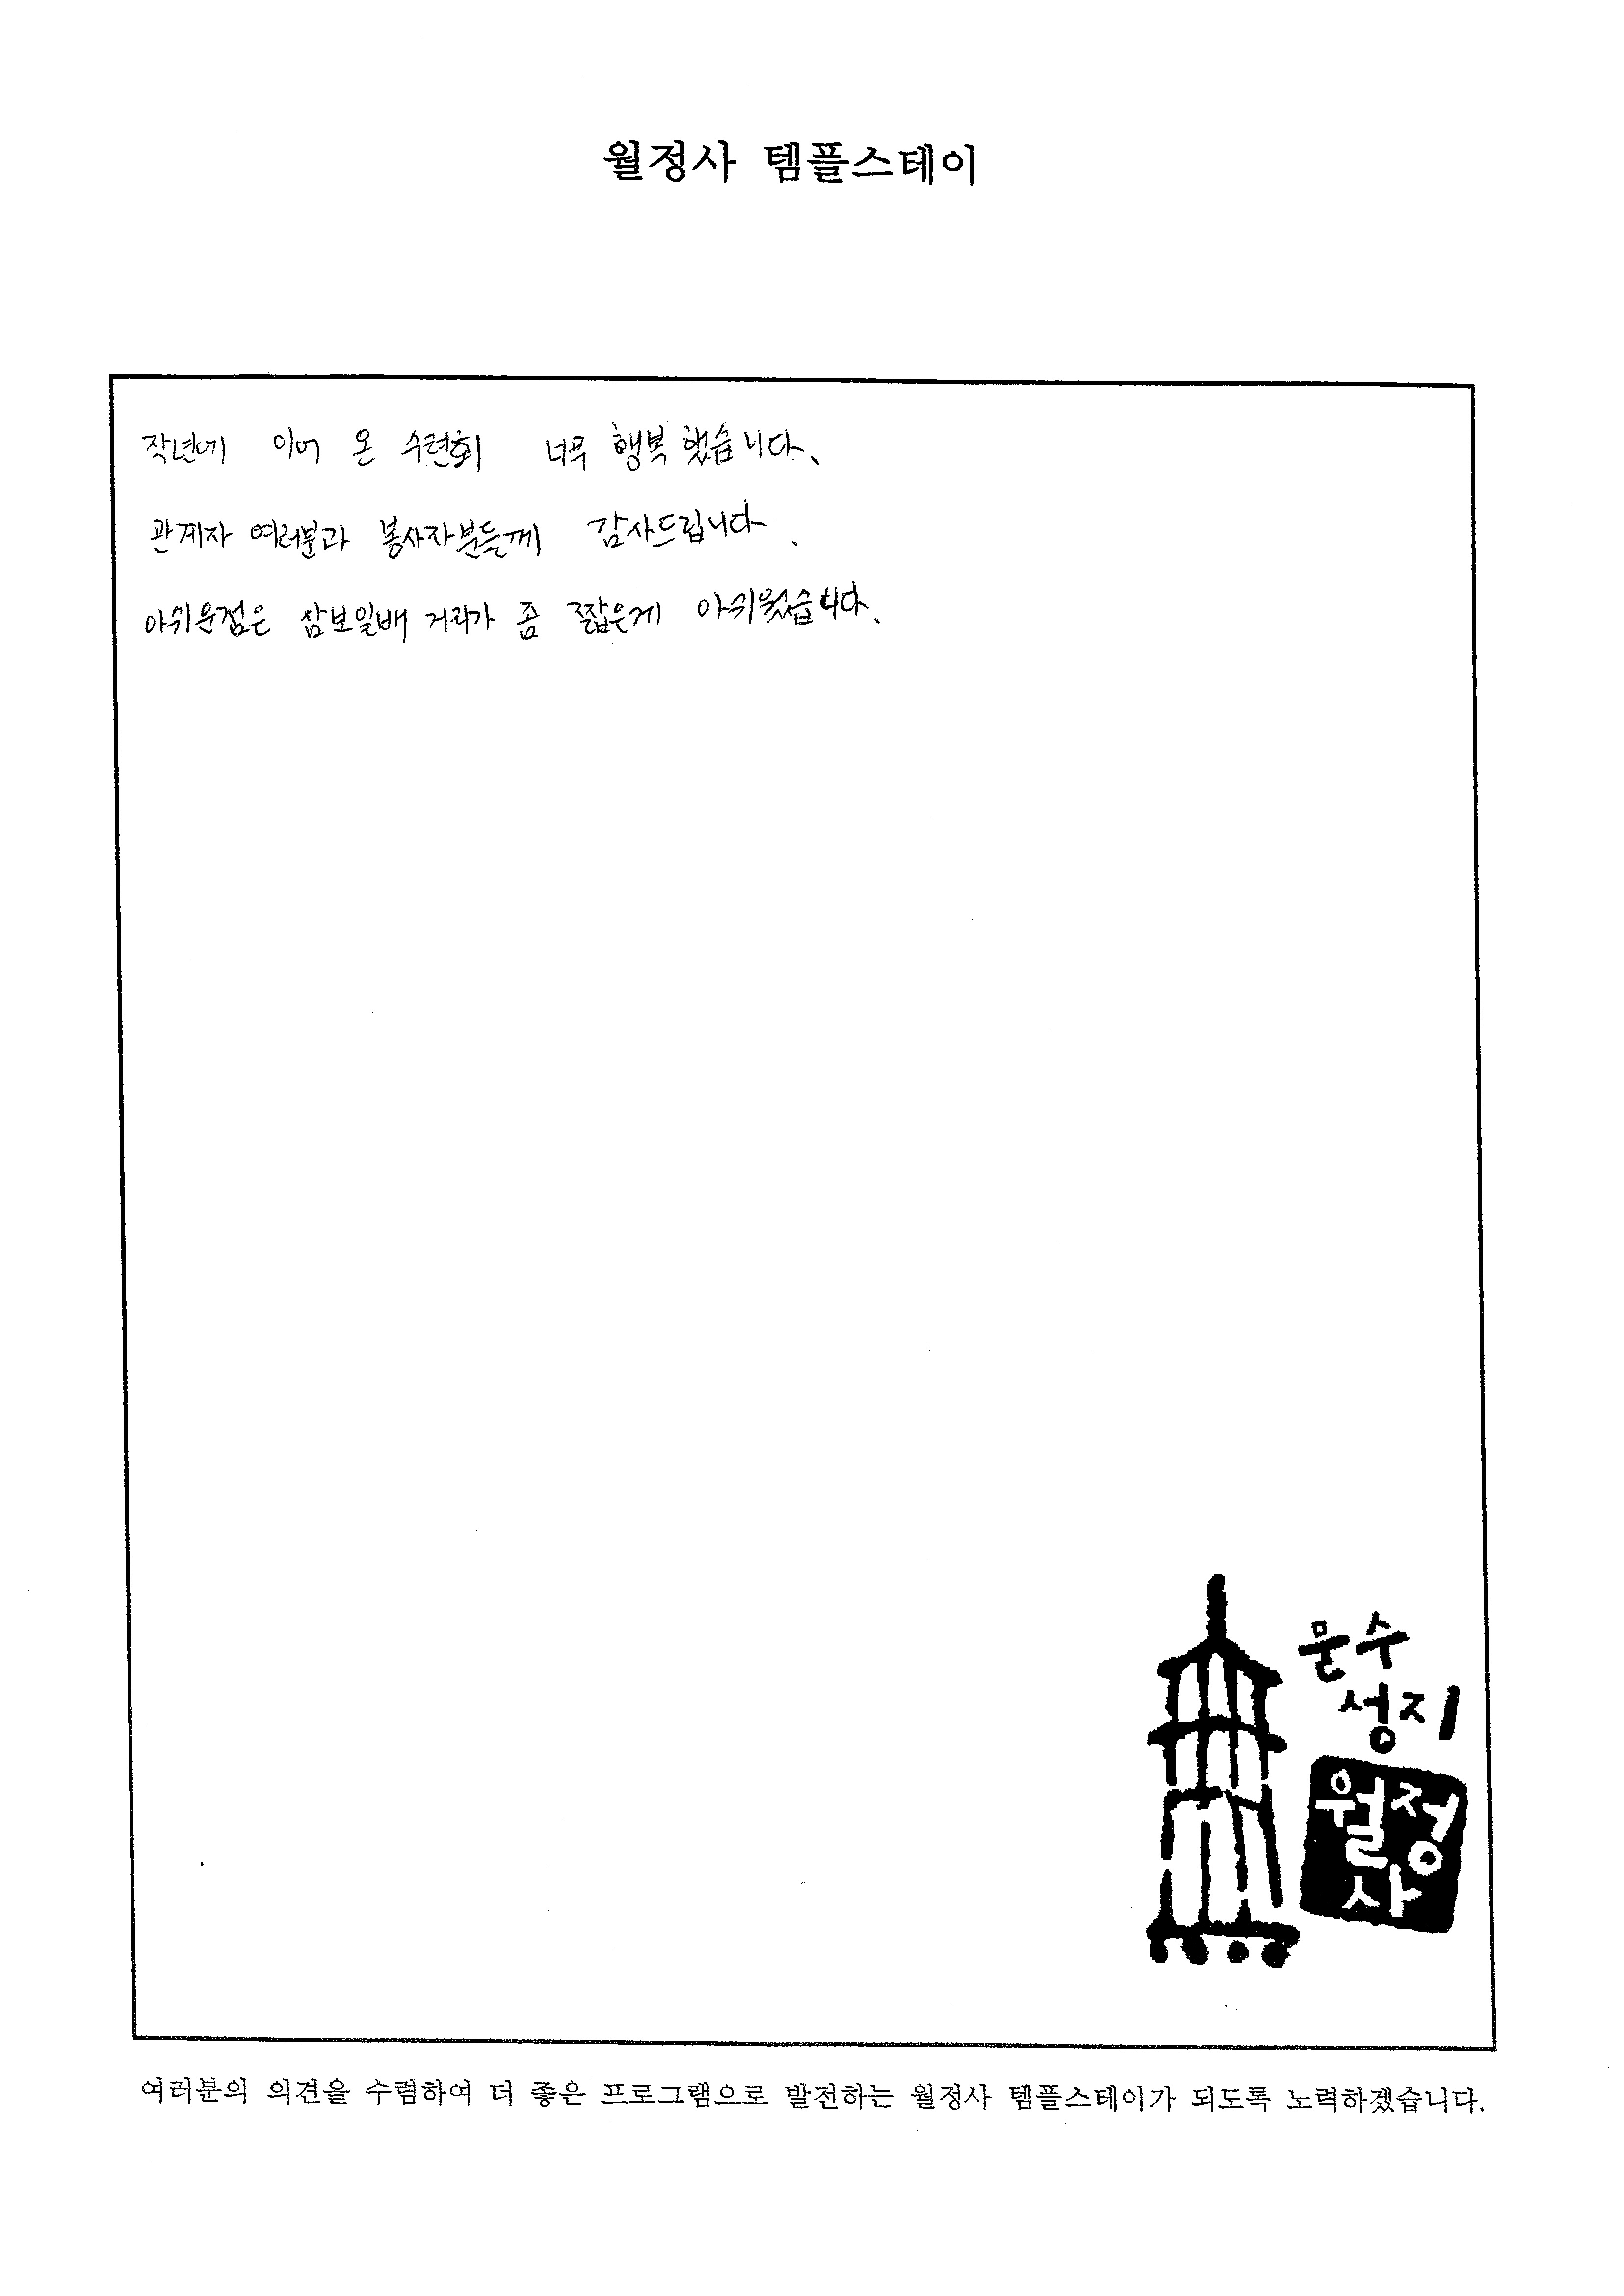 월정사 템플스테이
작년에 이어 온 수련회 너무 행복했습니다.
관계자 여러분과 봉사자분들께 감사드립니다.
아쉬운점은 삼보일배 거리가 좀 짧은게 아쉬웠습니다.
문수
성지
월정
사
여러분의 의견을 수렴하여 더 좋은 프로그램으로 발전하는 월정사 템플스테이가 되도록 노력하겠습니다.